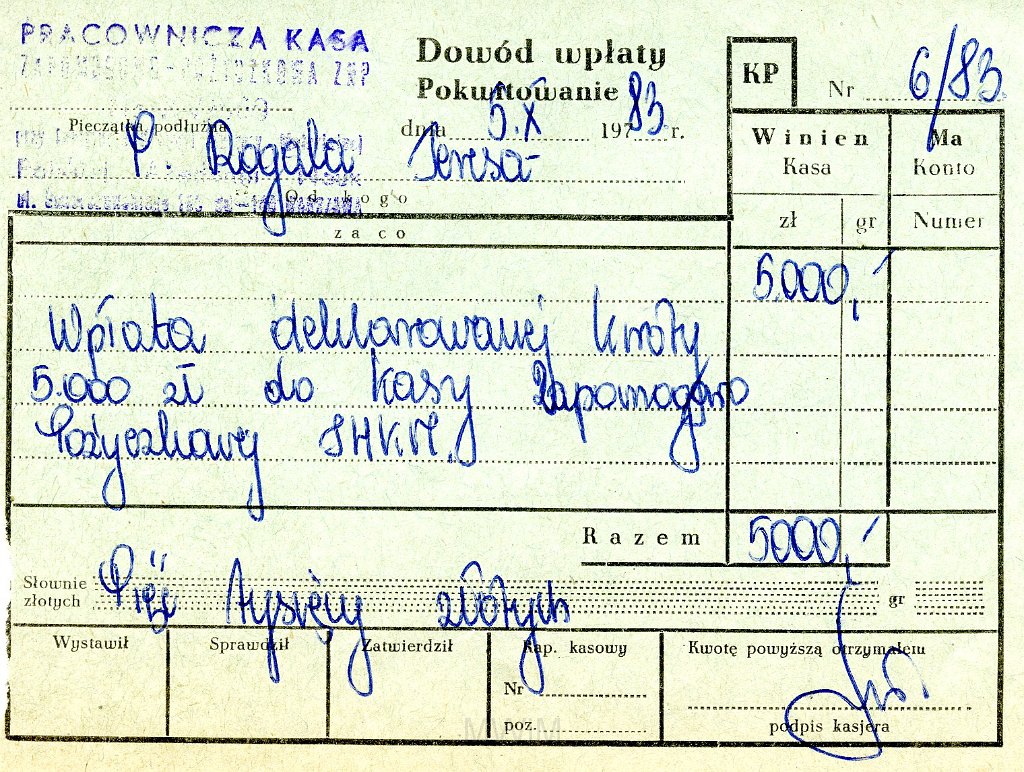 PRACOWNICZA KASA
ZAPOMOGOWO-POŻYCZKOWA ZNP
Pieczątka podłużna
Dowód wpłaty
Pokwitowanie
dnia 5.X 1983 r.
KP
Nr 6/83
P Rogala Teresa
Od kogo
za co
Winien Ma
Kasa Konto
zł gr Numer
5.000,-
Wpłata deklarowanej kwoty
5.000 zł do kasy Zapomogowo
Pożyczkowej
Razem 5000,-
Słownie
złotych
Pięć tysięcy złotych
gr
Wystawił Sprawdził Zatwierdził Rap. kasowy Kwotę powyższą otrzymałem
Nr
poz.
podpis kasjera